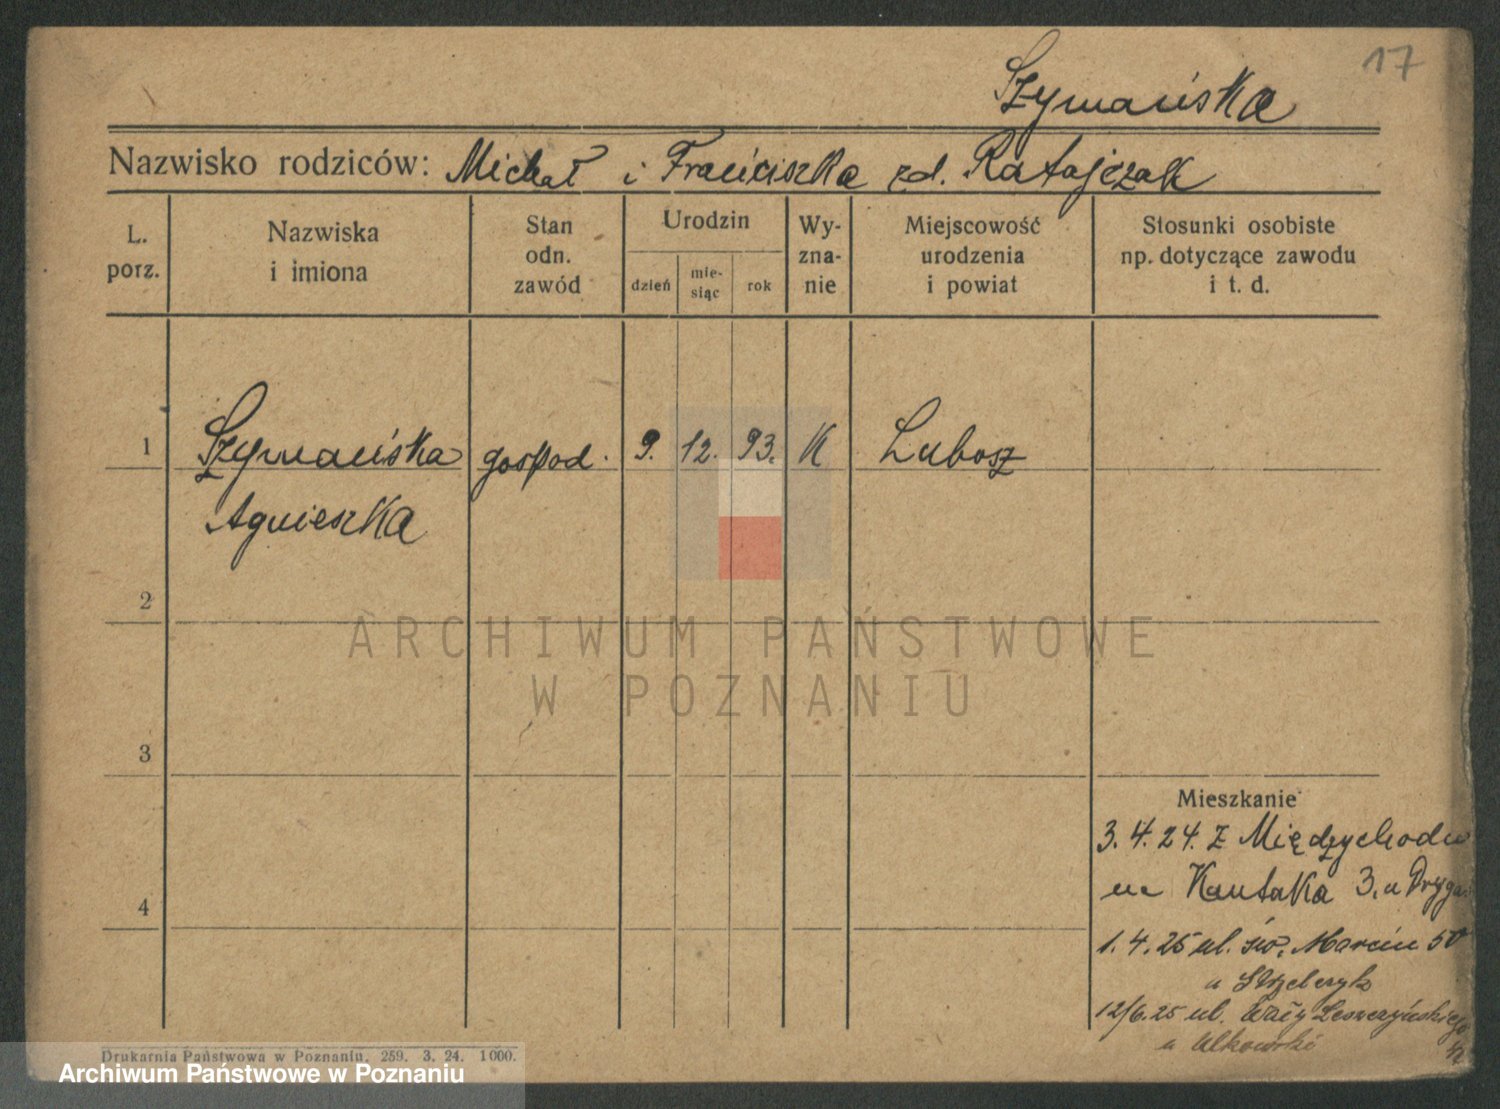 17
Szymańska
Nazwisko rodziców: Michał i Franciszka zd. Ratajczak
L. porz.
Nazwiska i imiona
Stan odn. zawód
Urodzin
dzień
mie-
siąc
rok
Wy-
zna-
nie
Miejscowość
urodzenia
i powiat
Stosunki osobiste
np. dotyczące zawodu
i t. d.
1 Szymańska gospod. 9. 12. 93. K Lubosz
Agnieszka
2
3
4
Mieszkanie
3. 4. 24. z Międzychodu
Kantaka 3. u Dryga
1. 4. 25 ul. św. Marcin 50
u
12/6.25 ul. Wały Leszczyńskiego
u
ARCHIWUM PAŃSTWOWE
W POZNANIU
Drukarnia Państwowa w Poznaniu. 259. 3. 24. 1000.
Archiwum Państwowe w Poznaniu